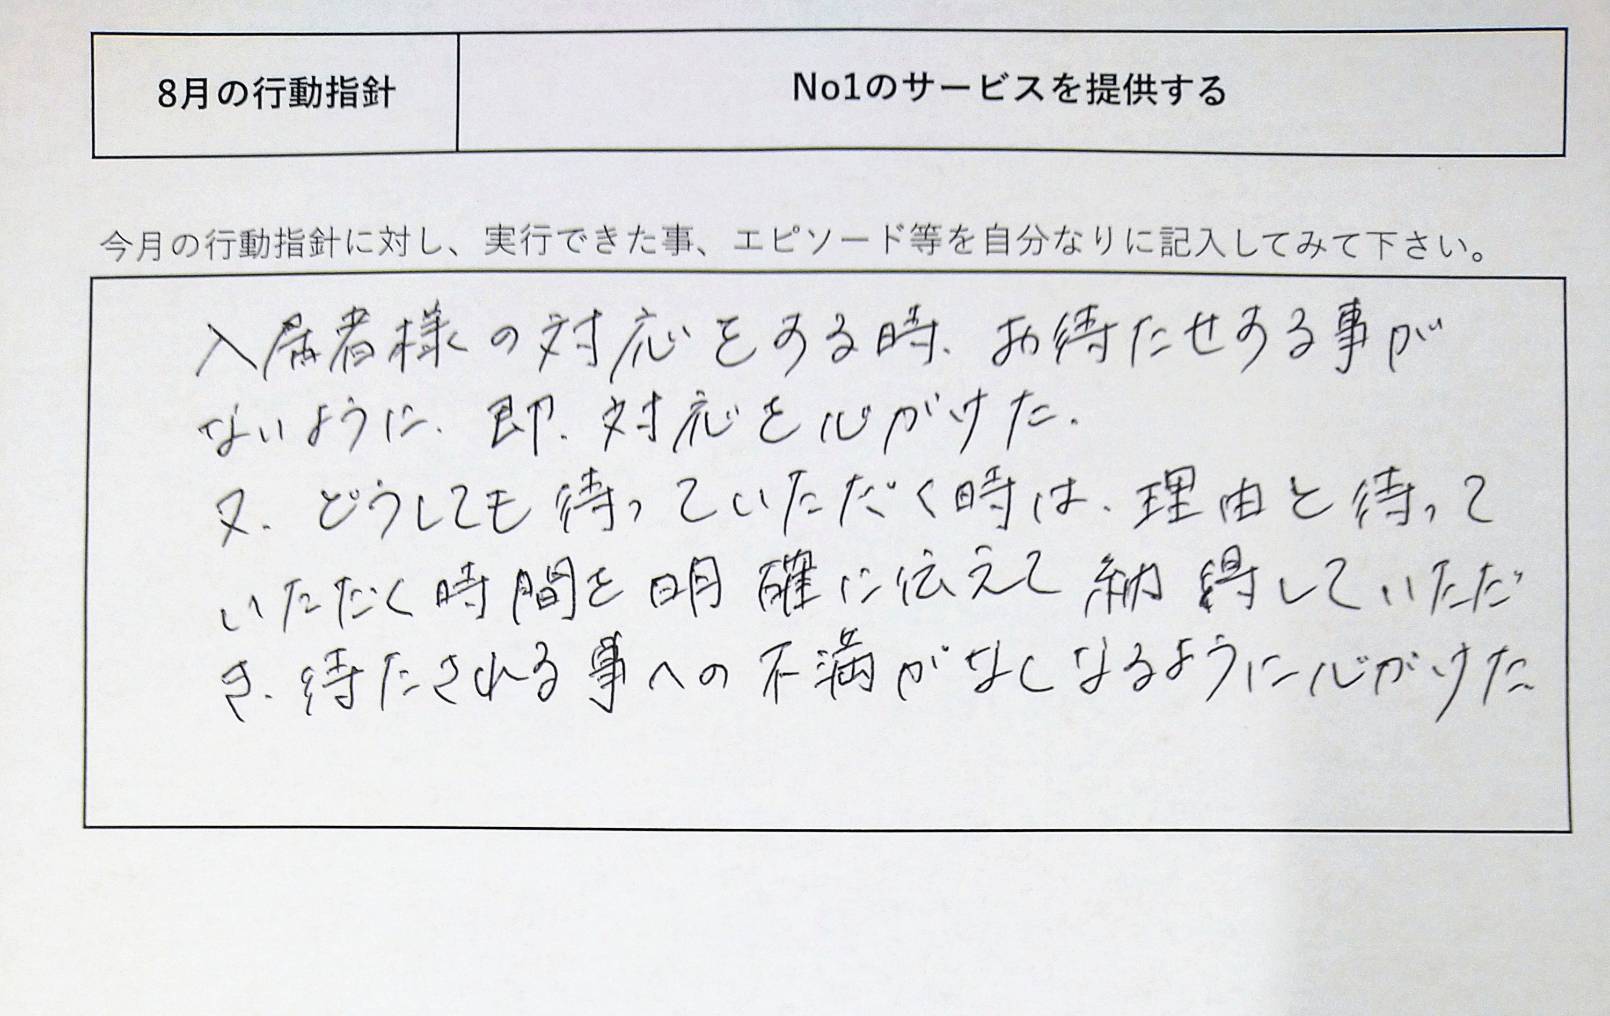 8月の行動指針
No1のサービスを提供する
今月の行動指針に対し、実行できた事、エピソード等を自分なりに記入してみて下さい。
入居者様の対応をする時、お待たせする事が
ないように、即、対応を心がけた。
又、どうしても待っていただく時は、理由と待って
いただく時間を明確に伝えて納得していただ
き、待たされる事への不満がなくなるように心がけた